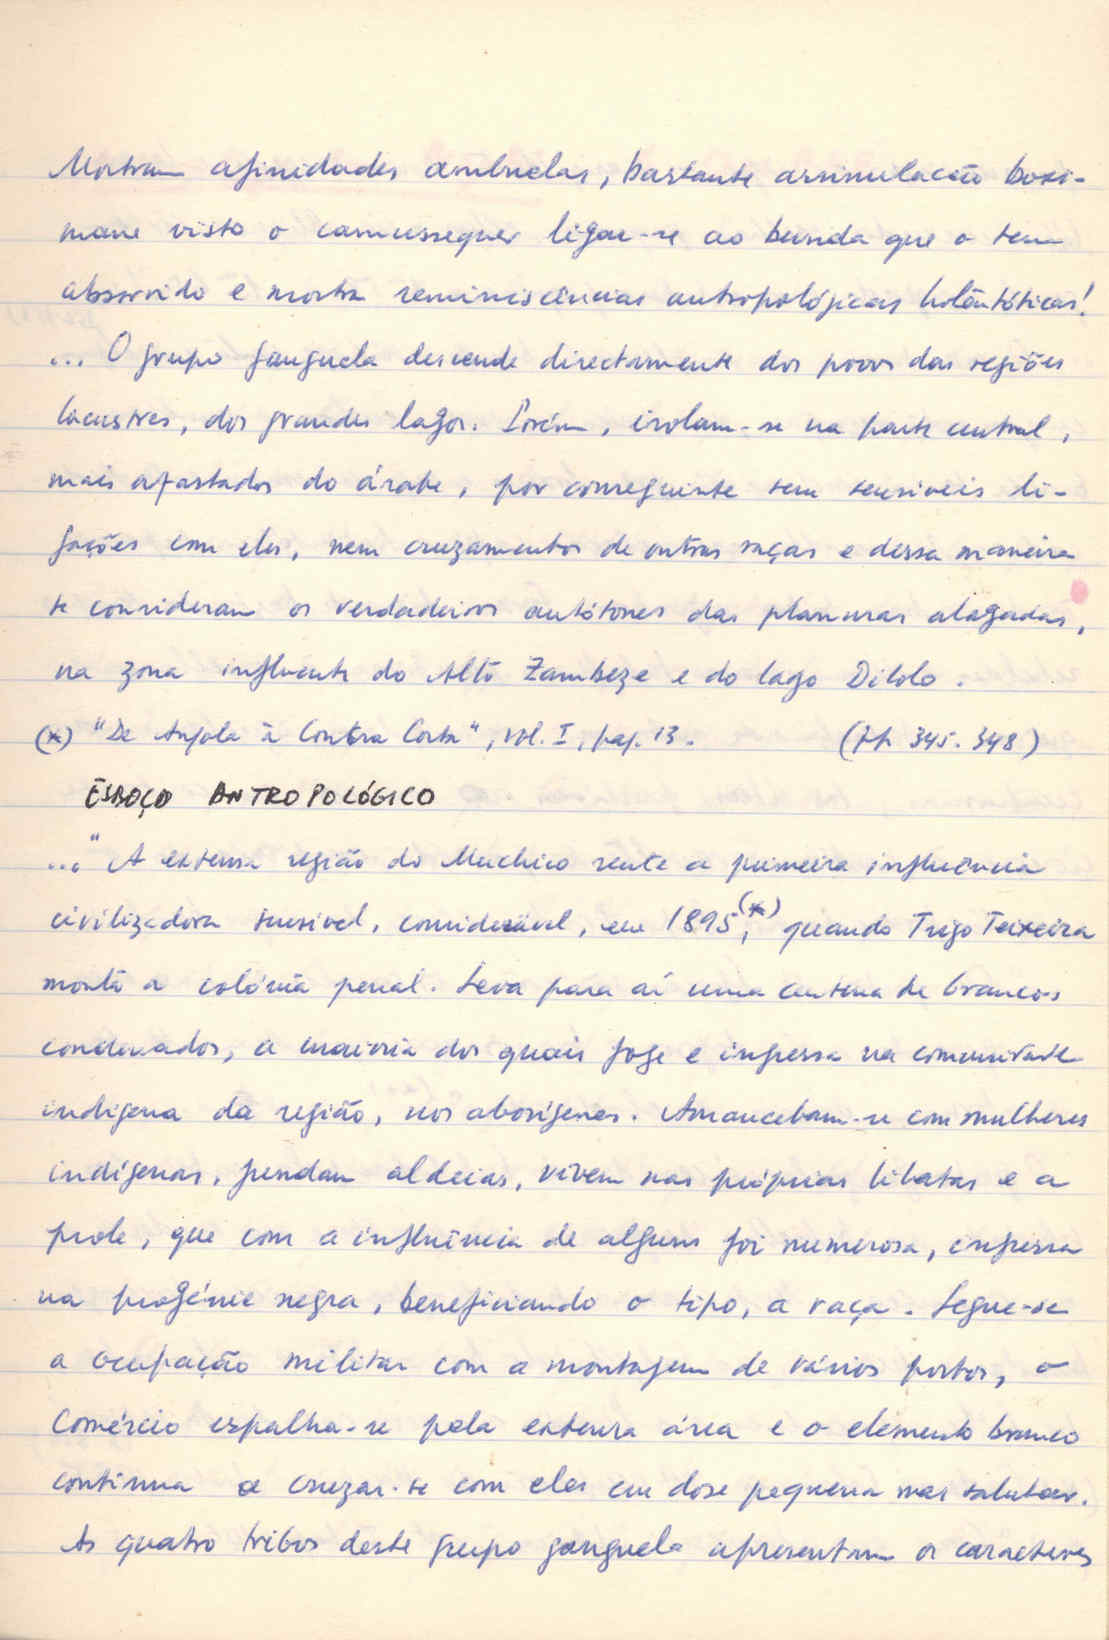 Mostram afinidades ambuelas, bastante assimilação boxi-
mane visto o camussequer ligar-se ao bunda que o tem
absorvido e mostra reminiscências antropológicas hotentóticas!
... O grupo ganguela descende directamente dos povos das regiões
lacustres, dos grandes lagos. Porém, isolam-se na parte central,
mais afastados do árabe, por conseguinte sem sensiveis li-
gações com eles, nem cruzamentos de outras raças e dessa maneira
se consideram os verdadeiros autótones das planuras alagadas,
na zona influente do Alto Zambeze e do lago Dilolo.
(*) "De Angola à Contra Costa", vol. I, pag. 13. (pp. 345-348)
ESBOÇO ANTROPOLÓGICO
..." A extensa região do Muchico sente a primeira influência
civilizadora sensivel, considerável, em 1895(*), quando Trigo Teixeira
monta a colónia penal. Leva para aí uma centena de brancos
condenados, a maioria dos quais foge e ingressa na comunidade
indigena da região, nos aborígenes. Amancebam-se com mulheres
indígenas, fundam aldeias, vivem nas próprias libatas e a
prole, que com a influência de alguns foi numerosa, ingressa
na progénie negra, beneficiando o tipo, a raça. Segue-se
a ocupação militar com a montagem de vários postos, o
comércio espalha-se pela extensa área e o elemento branco
continua a cruzar-se com eles em dose pequena mas salutar.
As quatro tribos deste grupo ganguela apresentam os caracteres